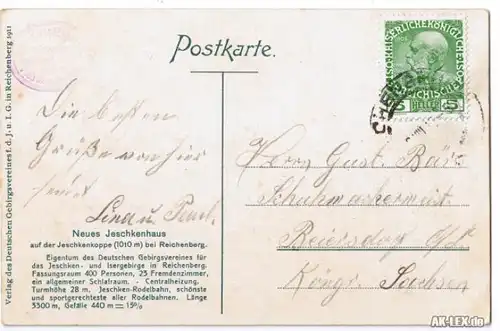 Verlag des Deutschen Gebirgsvereines f. d. J.- u. I. G. in Reichenberg 1911
Postkarte.
KAISERLICHE KÖNIGLICHE
1908
5 HELLER 5
Die besten
Grüße von hier
sendet
Lina u. Paul.
Neues Jeschkenhaus
auf der Jeschkenkoppe (1010 m) bei Reichenberg.
Eigentum des Deutschen Gebirgsvereines für
das Jeschken- und Isergebirge in Reichenberg.
Fassungsraum 400 Personen, 23 Fremdenzimmer,
ein allgemeiner Schlafraum. - Centralheizung.
Turmhöhe 28 m. Jeschken-Rodelbahn, schönste
und sportgerechteste aller Rodelbahnen. Länge
3300 m, Gefälle 440 m = 13%
Herrn Gust. Bär
Schuhmachermstr.
Beiersdorf
Königr. Sachsen
AK-LEX.de